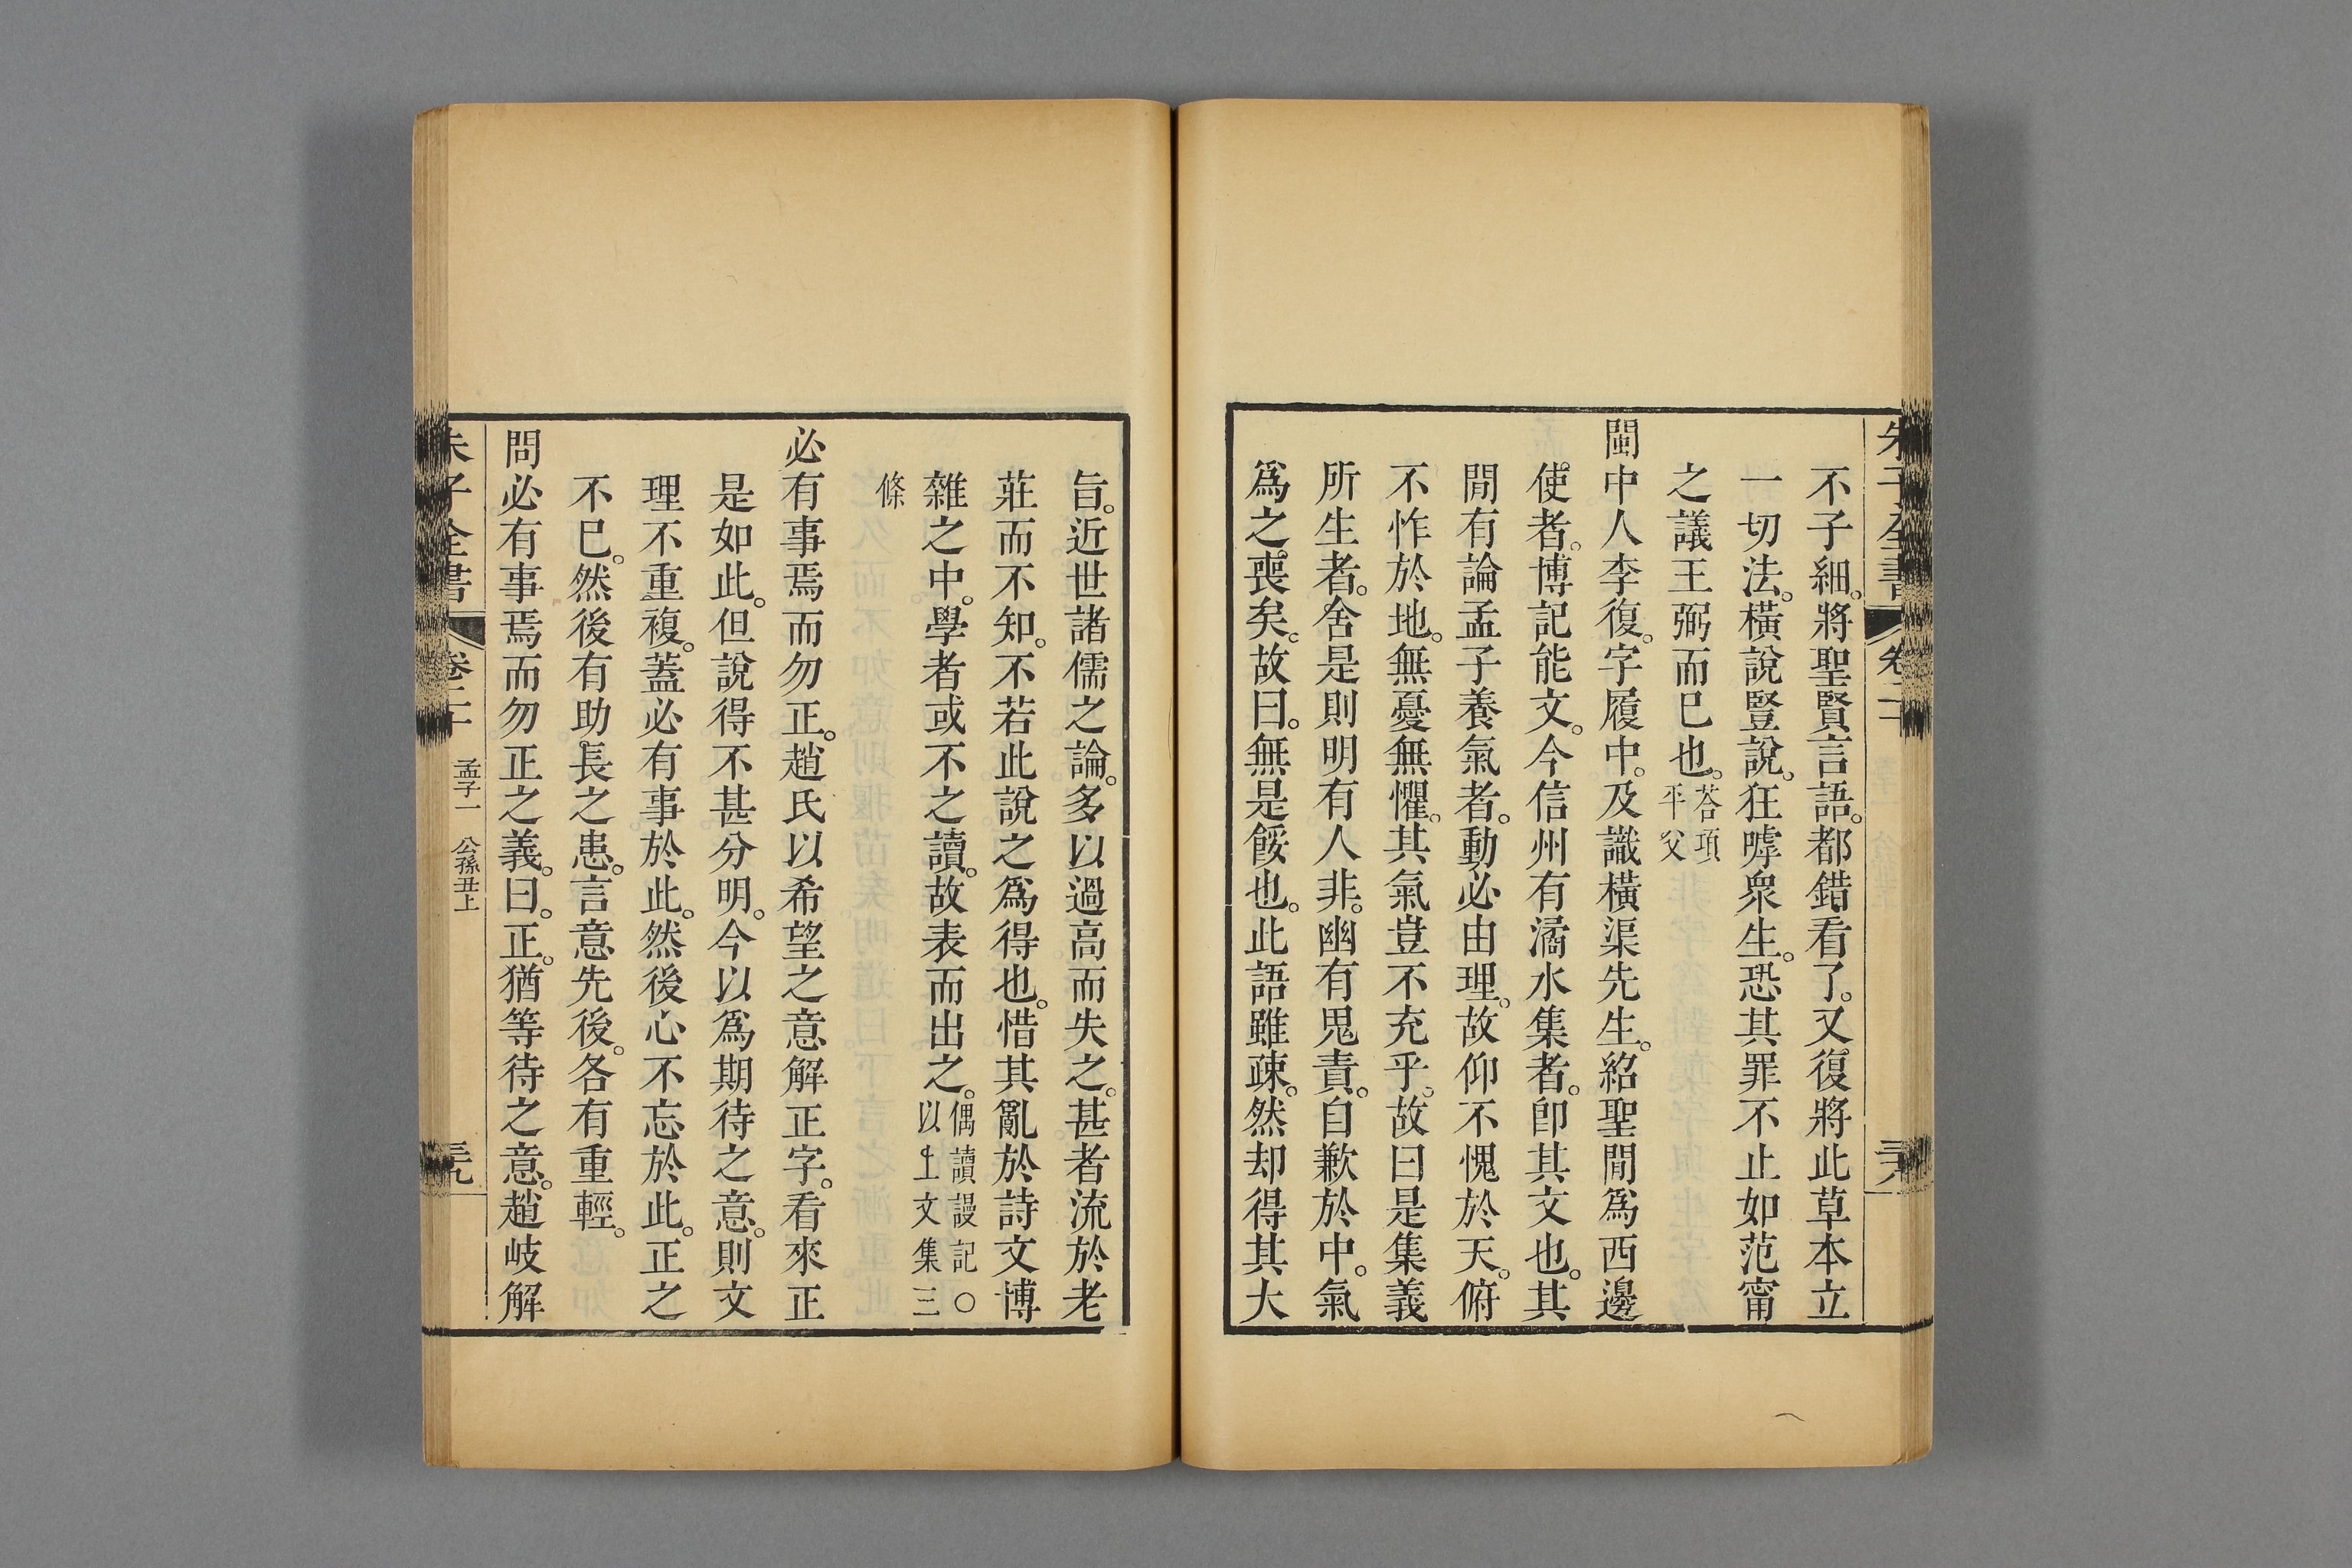 朱子全書 卷二十
不子細。將聖賢言語。都錯看了。又復將此草本立
一切法。橫說豎說。狂嘑衆生。恐其罪不止如范甯
之議王弼而已也。荅項平父
閩中人李復。字履中。及識橫渠先生。紹聖閒爲西邊
使者。博記能文。今信州有潏水集者。卽其文也。其
閒有論孟子養氣者。動必由理。故仰不愧於天。俯
不怍於地。無憂無懼。其氣豈不充乎。故曰是集義
所生者。舍是則明有人非。幽有鬼責。自歉於中。氣
爲之喪矣。故曰。無是餒也。此語雖疎。然却得其大
旨。近世諸儒之論。多以過高而失之。甚者流於老
莊而不知。不若此說之爲得也。惜其亂於詩文博
雜之中。學者或不之讀。故表而出之。偶讀謾記○以上文集三
條
必有事焉而勿正。趙氏以希望之意解正字。看來正
是如此。但說得不甚分明。今以爲期待之意。則文
理不重複。蓋必有事於此。然後心不忘於此。正之
不已。然後有助長之患。言意先後。各有重輕。
問必有事焉而勿正之義。曰。正。猶等待之意。趙岐解
朱子全書 卷二十 孟子一 公孫丑上 三九